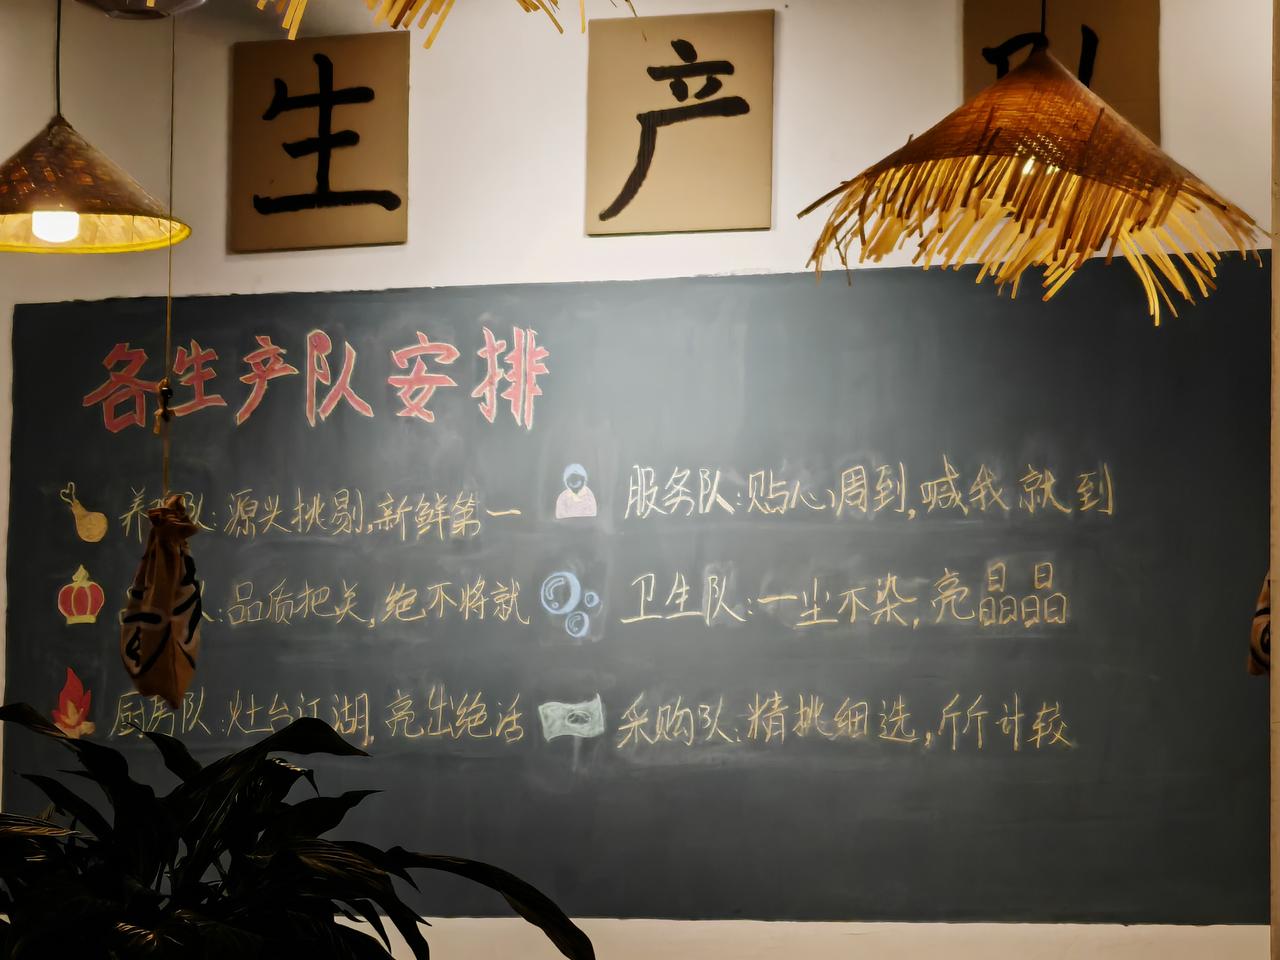 生产
各生产队安排
养队:源头挑剔,新鲜第一
队:品质把关,绝不将就
厨房队:灶台江湖,亮出绝活
服务队:贴心周到,喊我就到
卫生队:一尘不染,亮晶晶
采购队:精挑细选,斤斤计较